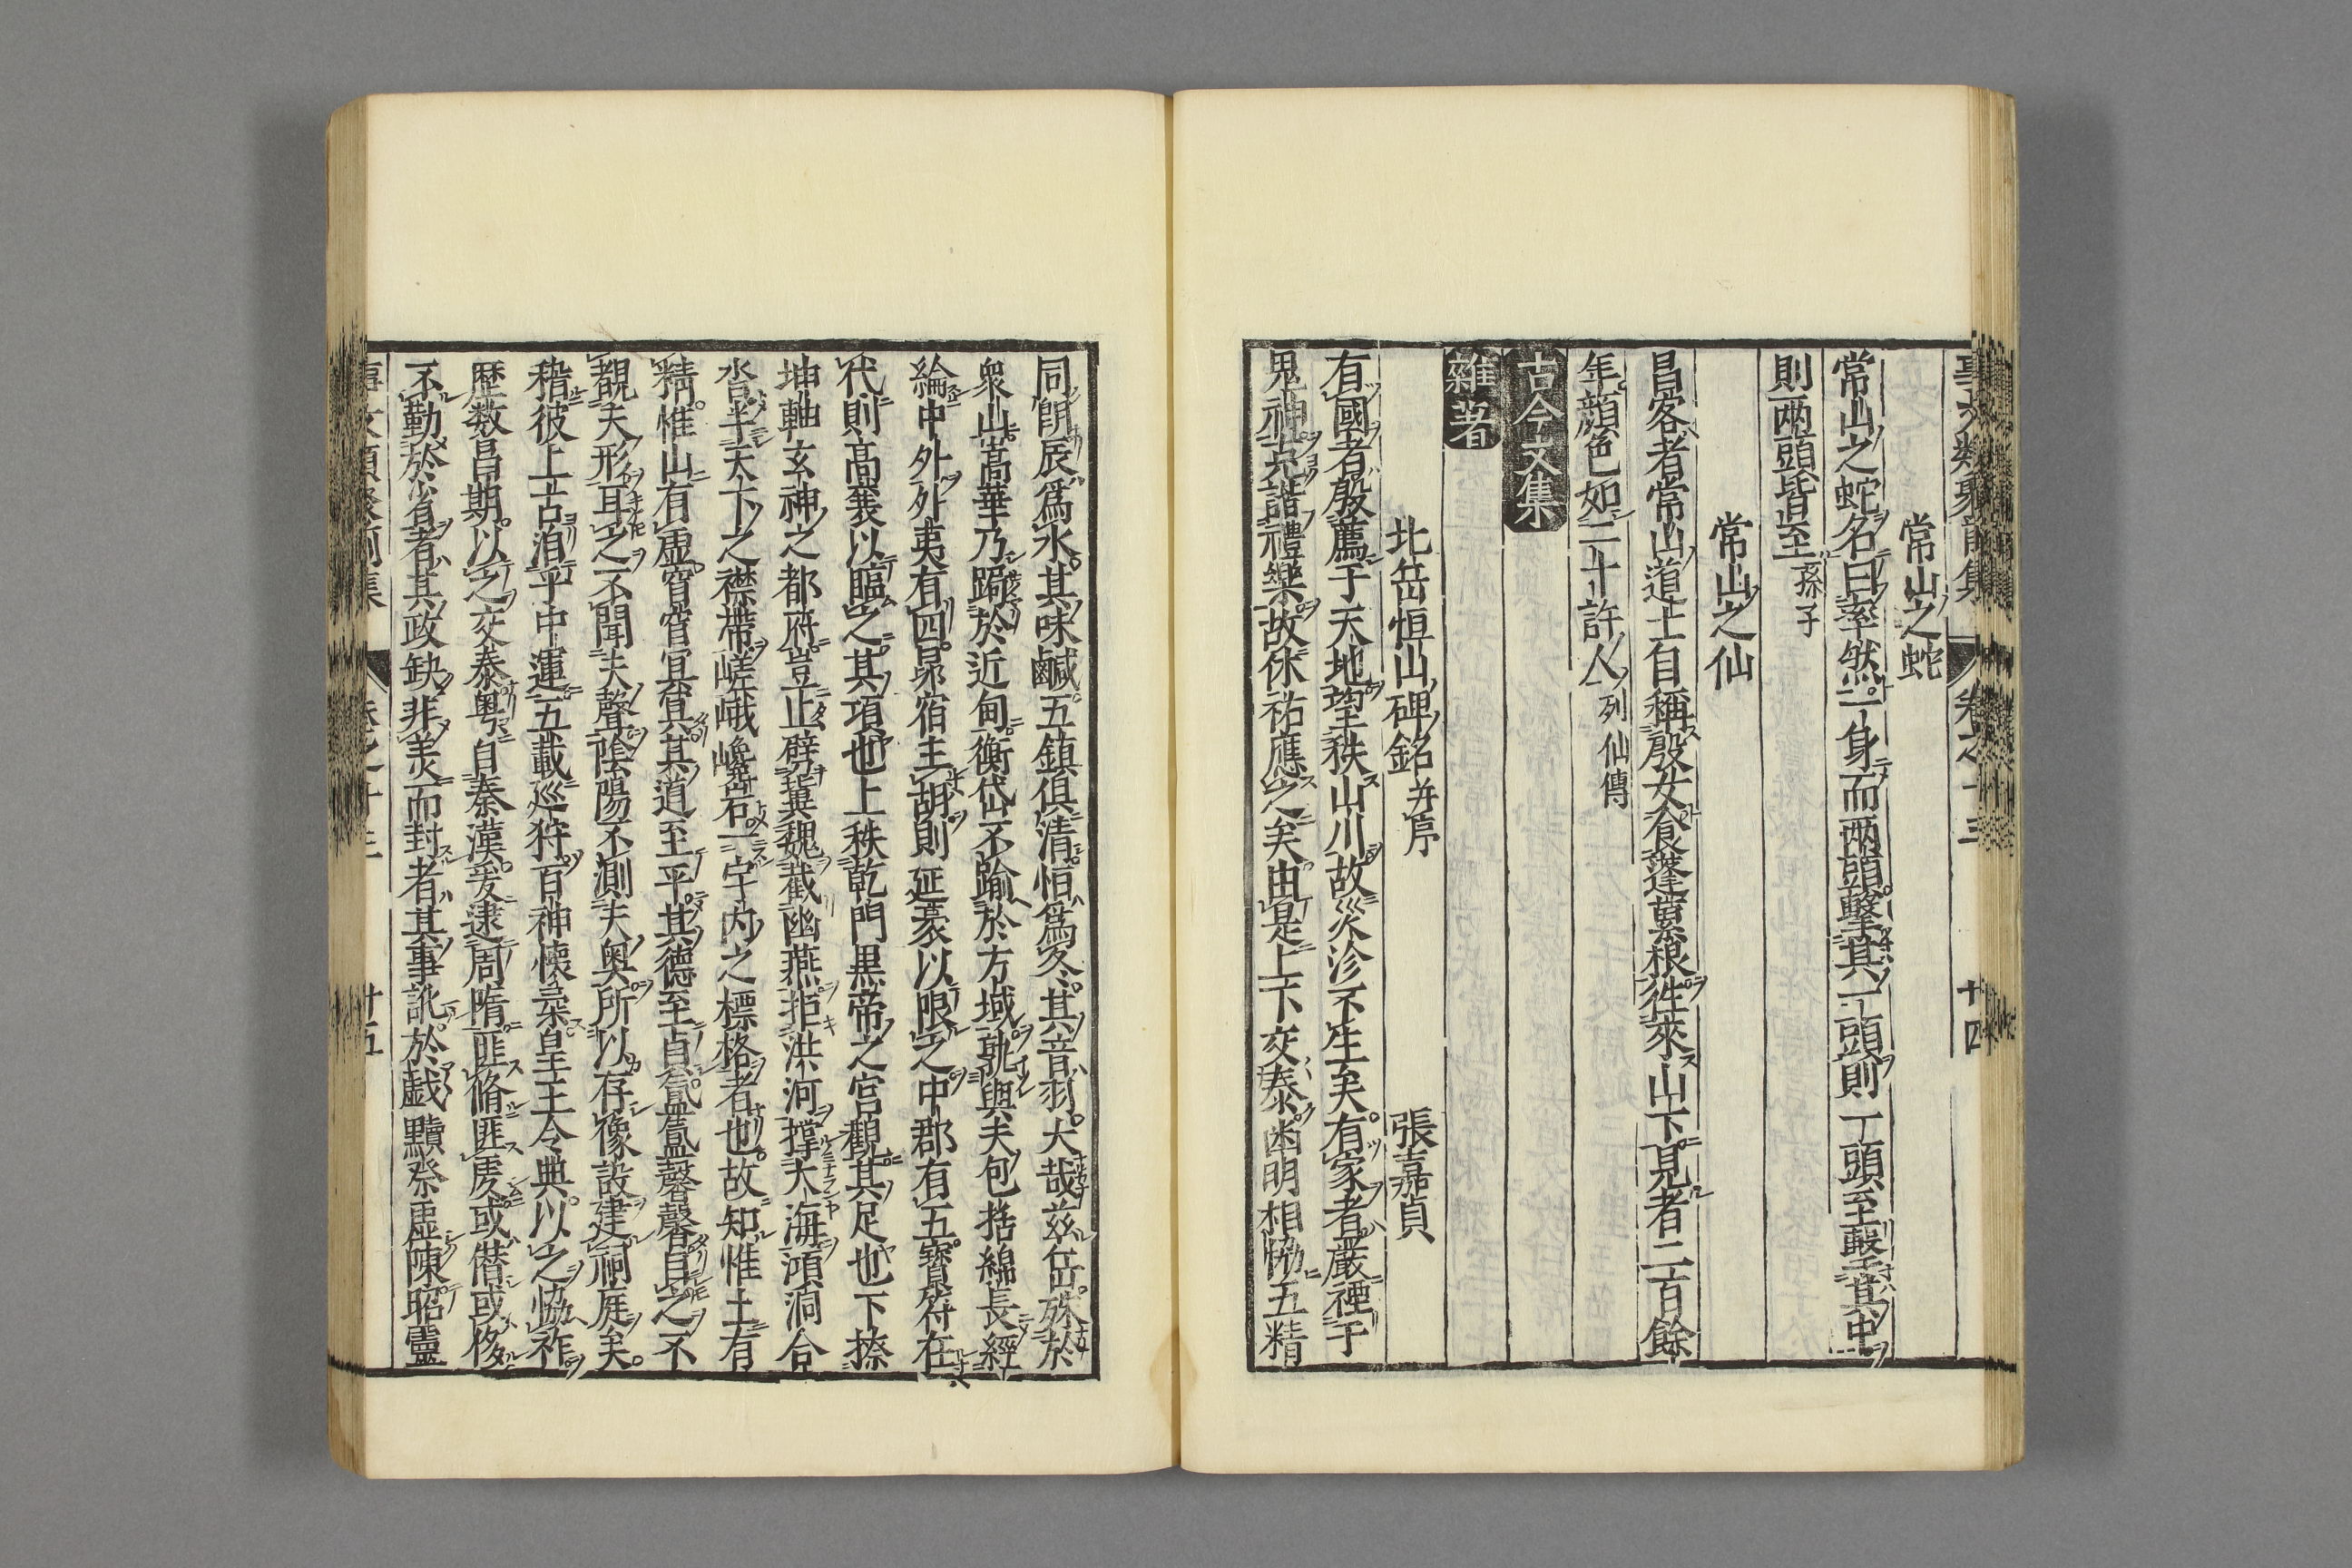 常山之蛇
常山之蛇名曰率然一身而兩頭擊其一頭則一頭至擊其中
則兩頭皆至孫子
常山之仙
昌容者常山道士自稱殷女食蓬虆根徃來山下見者二百餘
年顔色如二十許人列仙傳
古今文集
雜著
北岳恒山碑銘并序 張嘉貞
有國者殷薦于天地望秩山川故災沴不生矣有家者嚴禋于
鬼神克諧禮樂故休祐應之矣由是上下交泰幽明相恊五精
同卽辰爲水其味鹹五鎮俱清恒爲冬其音羽大哉兹岳殊於
衆山嵩華乃跼於近甸衡岱不踰於方域孰與夫包括綿長經
綸中外外夷有四昴宿主胡則延袤以限之中郡有五寳符在
代則高褰以臨之其項也上秩乾門黒帝之宮觀其足也下捺
坤軸玄神之都府豈止劈冀魏截幽燕拒洪河撑大海澒洞合
沓半天下之襟帶嵯峨巉岩一宇内之標格者也故知惟土有
精惟山有虚窅窅冥冥其道至平其德至貞氳氳馨馨自之不
覩夫形耳之不聞夫聲陰陽不測夫奥所以存像設建祠庭矣
稽彼上古洎乎中運五載巡狩百神懷柔皇王令典以之恊祚
歴数昌期以之交泰粤自秦漢爰逮周隋匪脩匪虔或僣或侈
不勤於省者其政缺非美而封者其事訛於戯黷祭虚陳昭靈